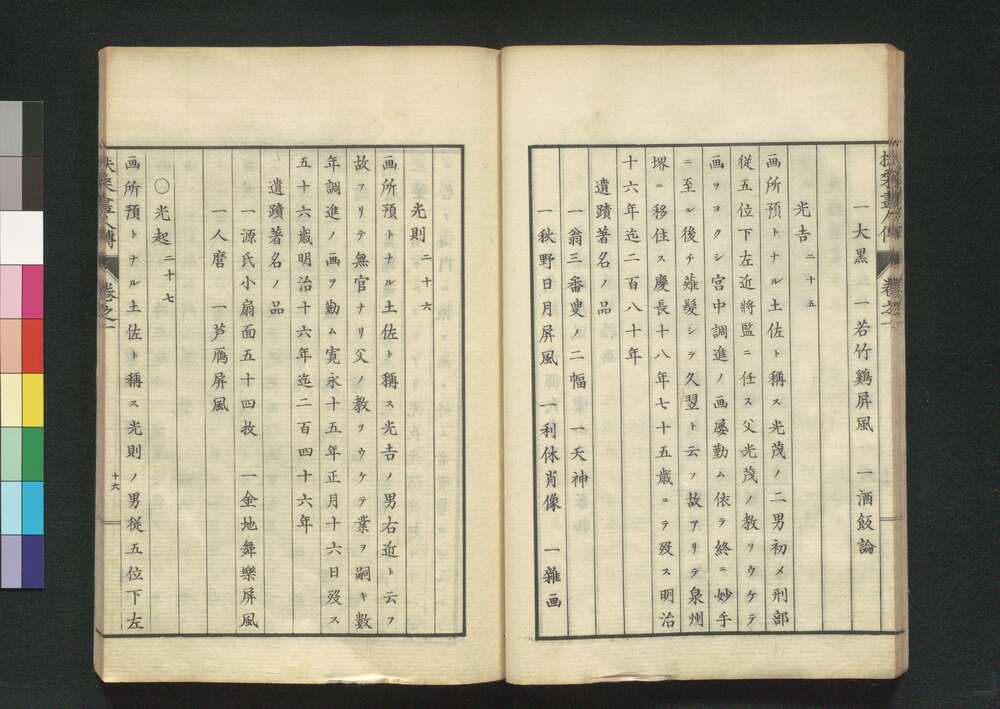 一大黒 一若竹鷄屏風 一酒飯論
光吉 二十五
画所預トナル土佐ト稱ス光茂ノ二男初メ刑部
従五位下左近將監ニ任ス父光茂ノ教ヲウケテ
画ヲヨクシ宮中調進ノ画屡勤ム依テ終ニ妙手
ニ至ル後チ薙髪シテ久翌ト云フ故アリテ泉州
堺ニ移住ス慶長十八年七十五歳ニテ歿ス明治
十六年迄二百八十年
遺蹟著名ノ品
一翁三番叟ノ二幅 一天神
一秋野日月屏風 一利休肖像 一雜画
光則 二十六
画所預トナル土佐ト稱ス光吉ノ男右近ト云フ
故アリテ無官ナリ父ノ教ヲウケテ業ヲ嗣キ數
年調進ノ画ヲ勤ム寛永十五年正月十六日歿ス
五十六歳明治十六年迄二百四十六年
遺蹟著名ノ品
一源氏小扇面五十四枚 一金地舞樂屏風
一人麿 一芦鴈屏風
○光起 二十七
画所預トナル土佐ト稱ス光則ノ男従五位下左
扶桑畫人傳 卷之一
十六